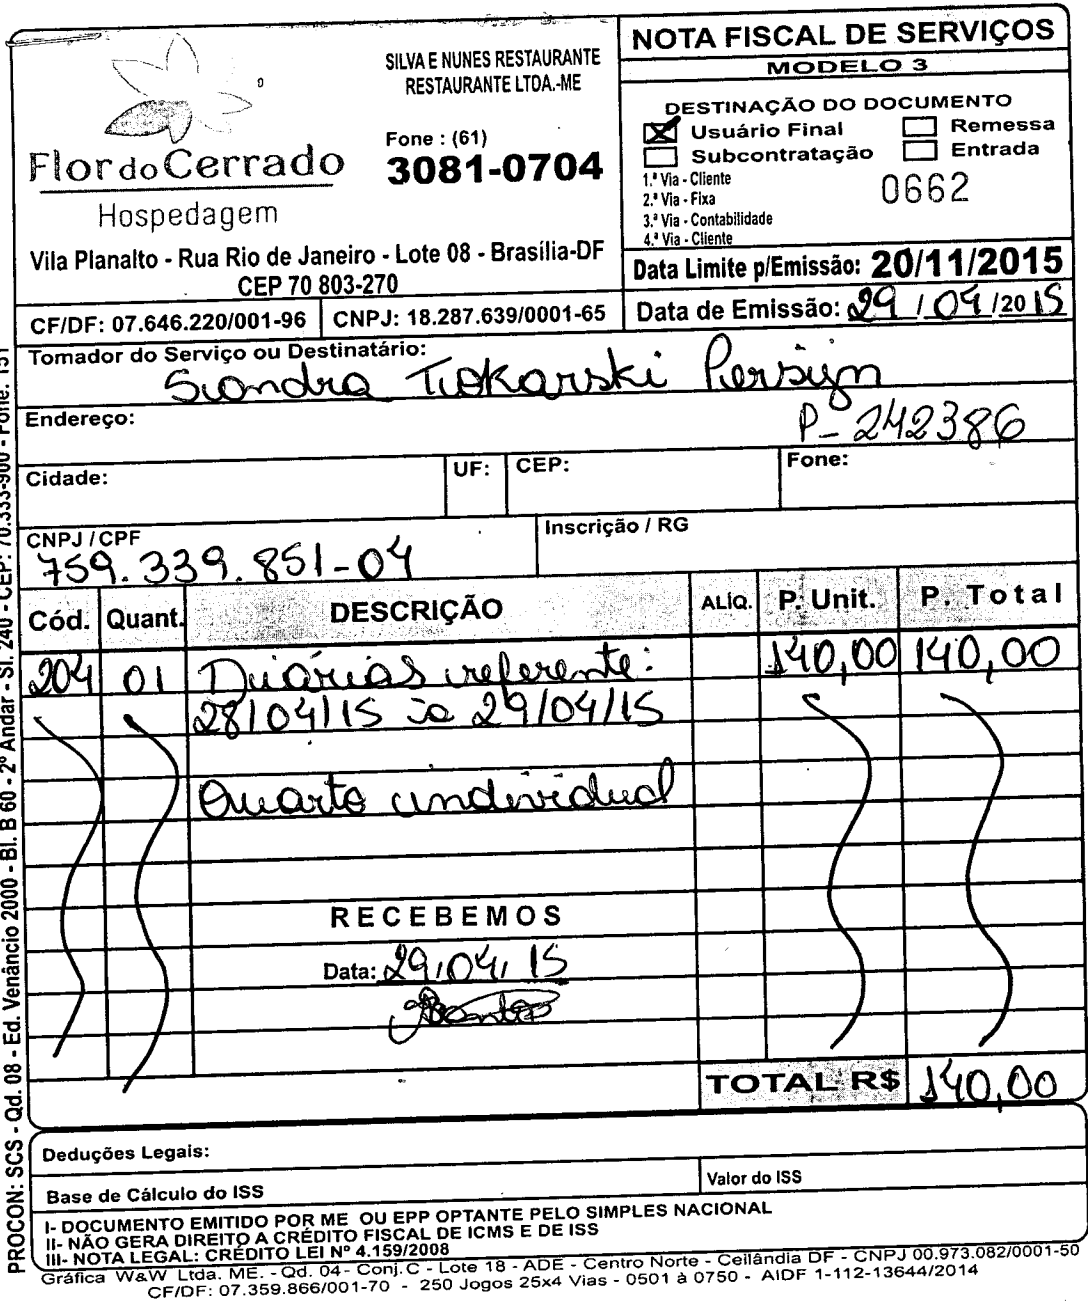 SILVA E NUNES RESTAURANTE
RESTAURANTE LTDA.-ME
Fone : (61)
3081-0704
Flor do Cerrado
Hospedagem
Vila Planalto - Rua Rio de Janeiro - Lote 08 - Brasília-DF
CEP 70 803-270
CF/DF: 07.646.220/001-96 CNPJ: 18.287.639/0001-65
NOTA FISCAL DE SERVIÇOS
MODELO 3
DESTINAÇÃO DO DOCUMENTO
Usuário Final Remessa
Subcontratação Entrada
1.ª Via - Cliente
2.ª Via - Fixa
3.ª Via - Contabilidade
4.ª Via - Cliente
0662
Data Limite p/Emissão: 20/11/2015
Data de Emissão: 29 / 04 /2015
Tomador do Serviço ou Destinatário:
Sandra Tokarski Persijn
Endereço:
P- 242386
Cidade: UF: CEP: Fone:
CNPJ / CPF Inscrição / RG
759.339.851-04
Cód. Quant. DESCRIÇÃO ALÍQ. P. Unit. P. Total
204 01 Diárias referente: 140,00 140,00
28/04/15 a 29/04/15
Quarto individual
RECEBEMOS
Data: 29/04/15
TOTAL R$ 140,00
Deduções Legais:
Base de Cálculo do ISS Valor do ISS
I- DOCUMENTO EMITIDO POR ME OU EPP OPTANTE PELO SIMPLES NACIONAL
II- NÃO GERA DIREITO A CRÉDITO FISCAL DE ICMS E DE ISS
III- NOTA LEGAL: CRÉDITO LEI Nº 4.159/2008
Gráfica W&W Ltda. ME. - Qd. 04 - Conj. C - Lote 18 - ADE - Centro Norte - Ceilândia DF - CNPJ 00.973.082/0001-50
CF/DF: 07.359.866/001-70 - 250 Jogos 25x4 Vias - 0501 à 0750 - AIDF 1-112-13644/2014
PROCON: SCS - Qd. 08 - Ed. Venâncio 2000 - Bl. B 60 - 2º Andar - Sl. 240 - CEP: 70.333-900 - Fone: 151